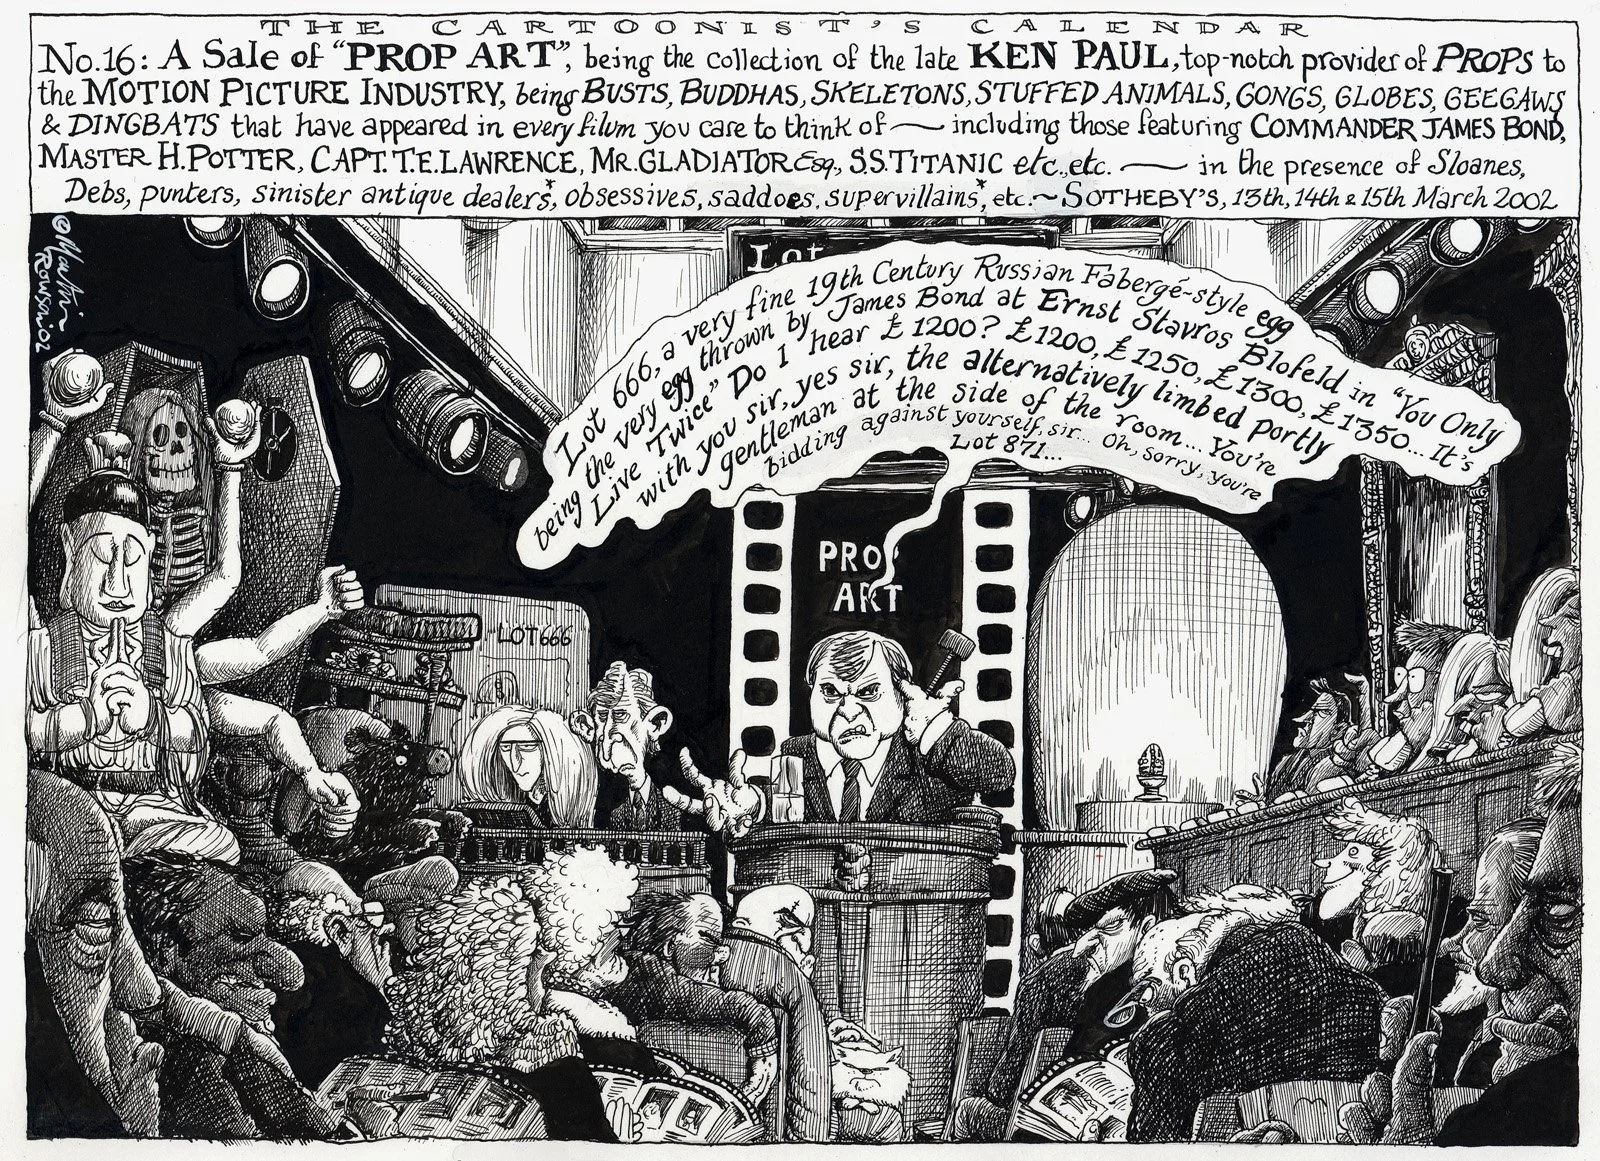 THE CARTOONIST'S CALENDAR
No.16: A Sale of "PROP ART", being the collection of the late KEN PAUL, top-notch provider of PROPS to
the MOTION PICTURE INDUSTRY, being BUSTS, BUDDHAS, SKELETONS, STUFFED ANIMALS, GONGS, GLOBES, GEEGAWS
& DINGBATS that have appeared in every filum you care to think of — including those featuring COMMANDER JAMES BOND,
MASTER H. POTTER, CAPT. T.E. LAWRENCE, MR. GLADIATOR Esq., S.S. TITANIC etc., etc. — in the presence of Sloanes,
Debs, punters, sinister antique dealers*, obsessives, saddoes, supervillains*, etc. ~ SOTHEBY'S, 13th, 14th & 15th March 2002
© Martin Rowson. 02
Lot
Lot 666, a very fine 19th Century Russian Fabergé-style egg
being the very egg thrown by James Bond at Ernst Stavros Blofeld in "You Only
Live Twice" Do I hear £1200? £1200, £1250, £1300, £1350... It's
with you sir, yes sir, the alternatively limbed portly
gentleman at the side of the room... You're
bidding against yourself, sir... Oh, sorry, you're
Lot 871...
PROP
ART
LOT 666